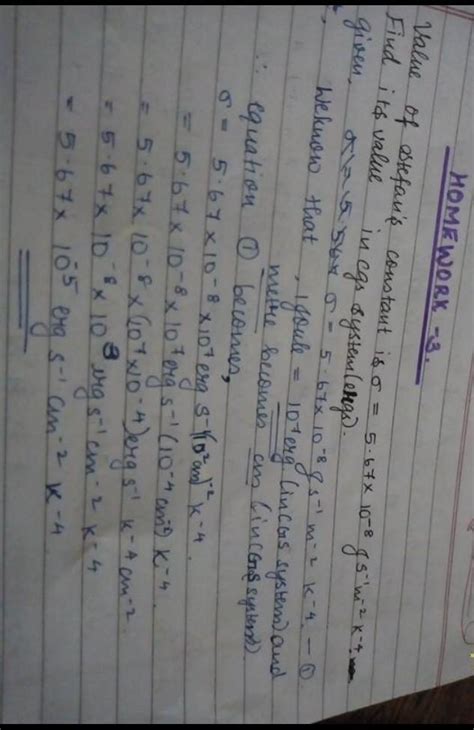 HOMEWORK-3.
Value of stefan's constant is σ = 5.67 × 10-8 J s-1 m-2 k-4.
Find its value in cgs system (ergs).
given, σ = 5.67 × 10-8 J s-1 m-2 k-4. — ①
We know that, 1 joule = 10⁷ erg (in CGS system) and
metre becomes cm (in CGS system).
∴ equation ① becomes,
σ = 5.67 × 10-8 × 10⁷ erg s-1 (10² cm)-2 k-4.
= 5.67 × 10-8 × 10⁷ erg s-1 (10-4 cm-2) k-4.
= 5.67 × 10-8 × (10⁷ × 10-4) erg s-1 k-4 cm-2.
= 5.67 × 10-8 × 10³ erg s-1 cm-2 k-4
= 5.67 × 10-5 erg s-1 cm-2 k-4